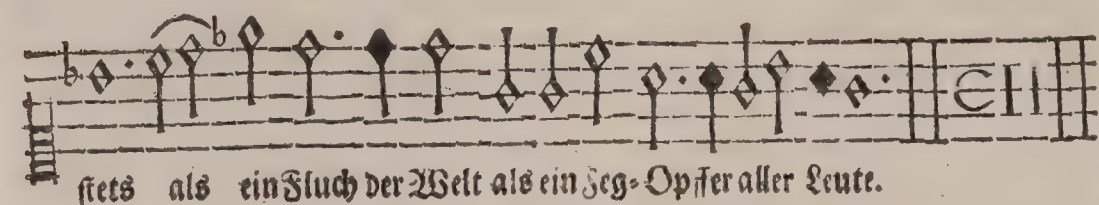 stets als ein Fluch der Welt als ein Feg-Opffer aller Leute.